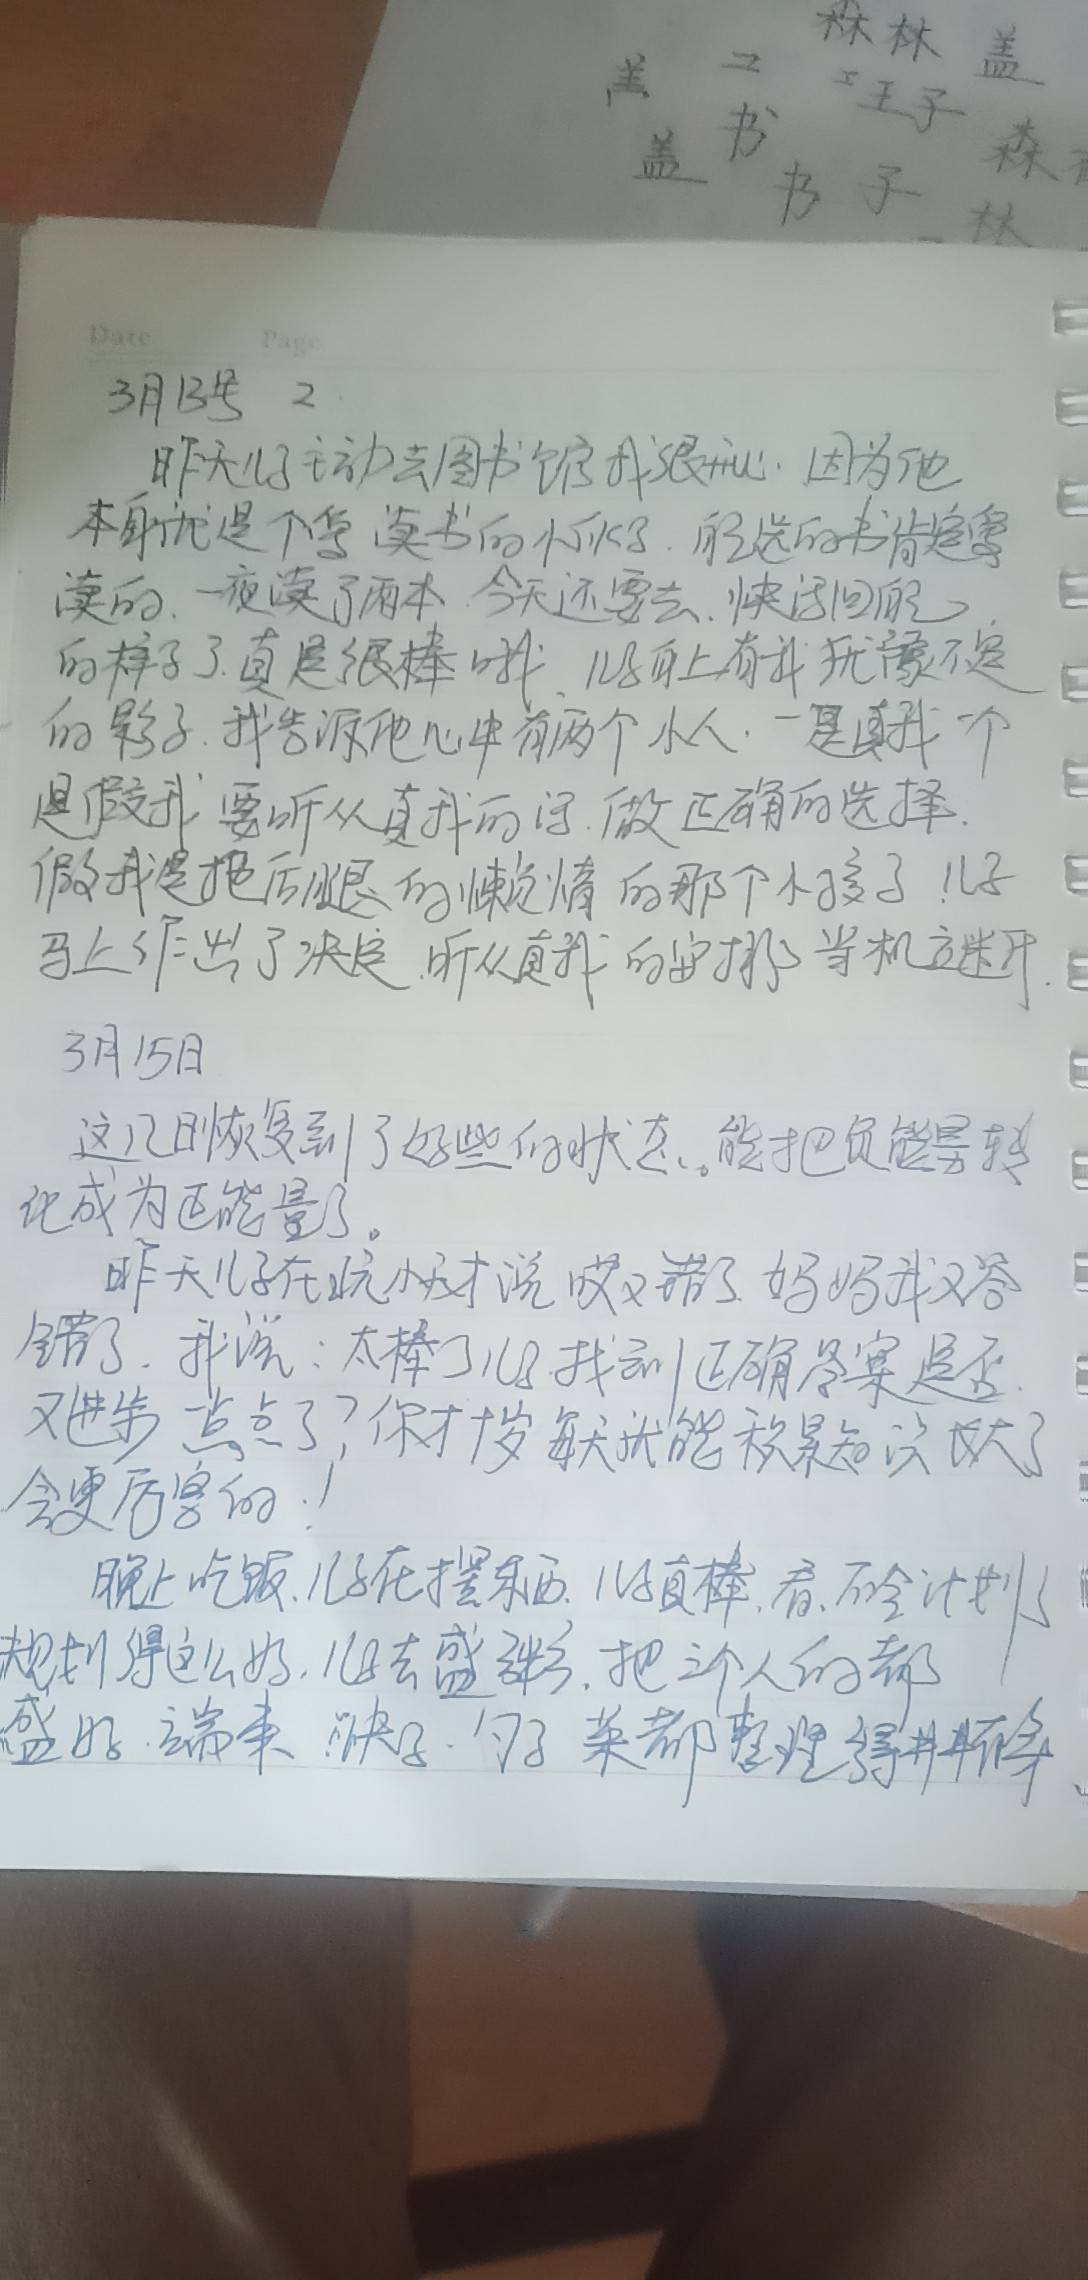 森林 盖
盖 コ 工 王子
盖 书 森
书 子 林
Date Page
3月13号 2
昨天儿子主动去图书馆我很开心. 因为他
本身就是个爱读书的小伙子. 所选的书肯定爱
读的. 一夜读了两本. 今天还要去. 快活回
的样子了. 真是很棒哦. 儿子身上有我犹豫不定
的影子. 我告诉他心中有两个小人. 一是真我一个
是假我 要听从真我的话. 做正确的选择.
假我是拖后腿的懒惰的那个小孩子! 儿子
马上作出了决定. 听从真我的安排 当机立断
3月15日
这几日恢复到了好些的状态。能把负能量转
化成为正能量了。
昨天儿子在玩 说 哎又错了 妈妈我又答
错了. 我说: 太棒了儿子 找到正确答案是否
又进步一点点了? 你才十岁 每天就能积累知识 长大了
会更厉害的!
晚上吃饭. 儿子在摆东西. 儿子真棒. 看. 计划了
规划得这么好. 儿子去盛粥. 把三个人的都
盛好. 端来 筷子. 勺子 菜都整理得井井有条